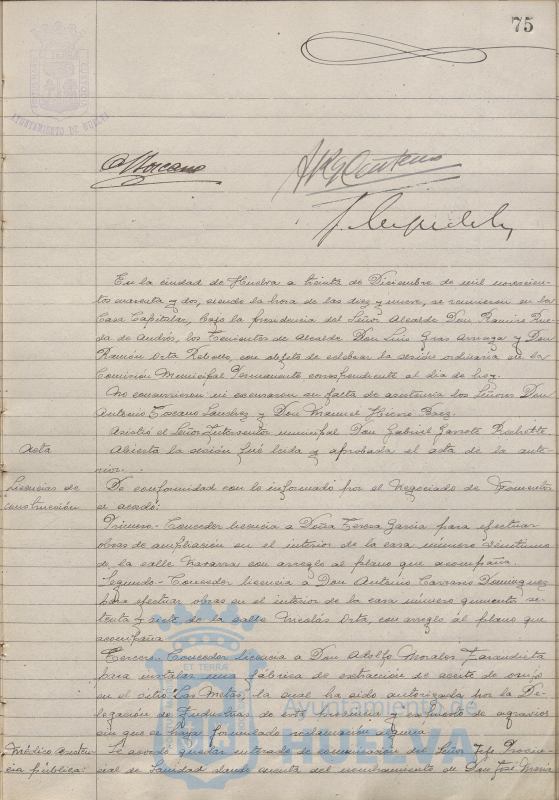 75
AYUNTAMIENTO DE HUELVA
En la ciudad de Huelva a treinta de Diciembre de mil novecien-
tos cuarenta y dos, siendo la hora de las diez y nueve, se reunieron en la
Casa Capitular, bajo la presidencia del Señor Alcalde Don Ramiro Rue-
da de Andrés, los Tenientes de Alcalde Don Luis Gras Arnaga y Don
Ramón Orta Rebollo, con objeto de celebrar la sesión ordinaria en la
Comisión Municipal Permanente correspondiente al día de hoy.
No concurrieron ni excusaron su falta de asistencia los Señores Don
Antonio Toscano Sanchez y Don Manuel Baez.
Asistió el Señor Interventor municipal Don Gabriel Garrote
Acta
Abierta la sesión fué leida y aprobada el acta de la ante-
rior.
Licencias de
construcción
De conformidad con lo informado por el Negociado de Fomento
se acordó:
Primero.- Conceder licencia a Doña Teresa Garcia para efectuar
obras de ampliación en el interior de la casa número veintiuno
de la calle Navarra con arreglo al plano que acompaña.
Segundo.- Conceder licencia a Don Antonio Carrasco Dominguez
para efectuar obras en el interior de la casa número cincuenta
y siete de la calle Nicolás Orta, con arreglo al plano que
acompaña.
Tercero.- Conceder licencia a Don Adolfo Morales Zarandieta
para instalar una fábrica de extracción de aceite de orujo
en el sitio Las Metas, la cual ha sido autorizada por la De-
legación de Industrias de esta provincia y expuesto de agravios
sin que se haya formulado reclamación alguna.
Médico Asisten-
cia pública
Se acordó quedar enterado de comunicación del Señor Jefe Provin-
cial de Sanidad dando cuenta del nombramiento de Don José Maria
ET TERRA
Ayuntamiento de
HUELVA